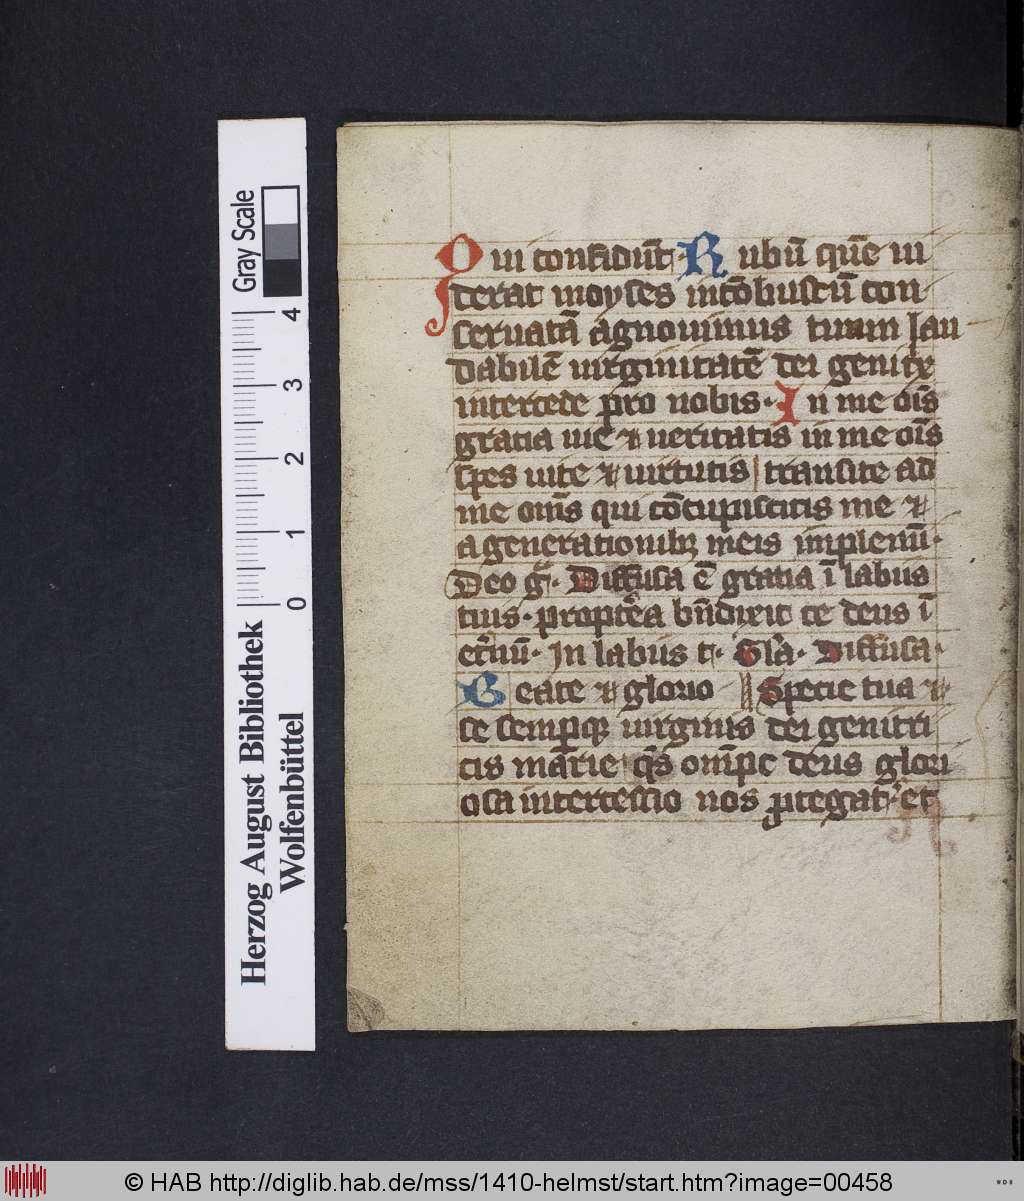 Gray Scale
4
3
2
1
0
Herzog August Bibliothek
Wolfenbüttel
Qui confidūt R ubū quē ui
derat moyses incōbustū con
seruatā agnouimus tuam lau
dabilē uirginitatē dei genitx
intercede pro nobis · In me oīs
gratia uie et ueritatis in me oīs
spes uite et uirtutis transite ad
me om̄s qui cōcupiscitis me et
a generationibꝫ meis implemī ·
Deo g̃ · Diffusa ē gratia ī labiis
tuis · propt̄ea bn̄dixit te deus ī
et̄nū · In labiis t · Gl̄a · Diffusa ·
Beate et glorio Specie tua et
se semꝑqꝫ uirginis dei genitri
cis marie q̄s om̄pc deus glori
osa intercessio nos ꝓtegat · et
© HAB http://diglib.hab.de/mss/1410-helmst/start.htm?image=00458